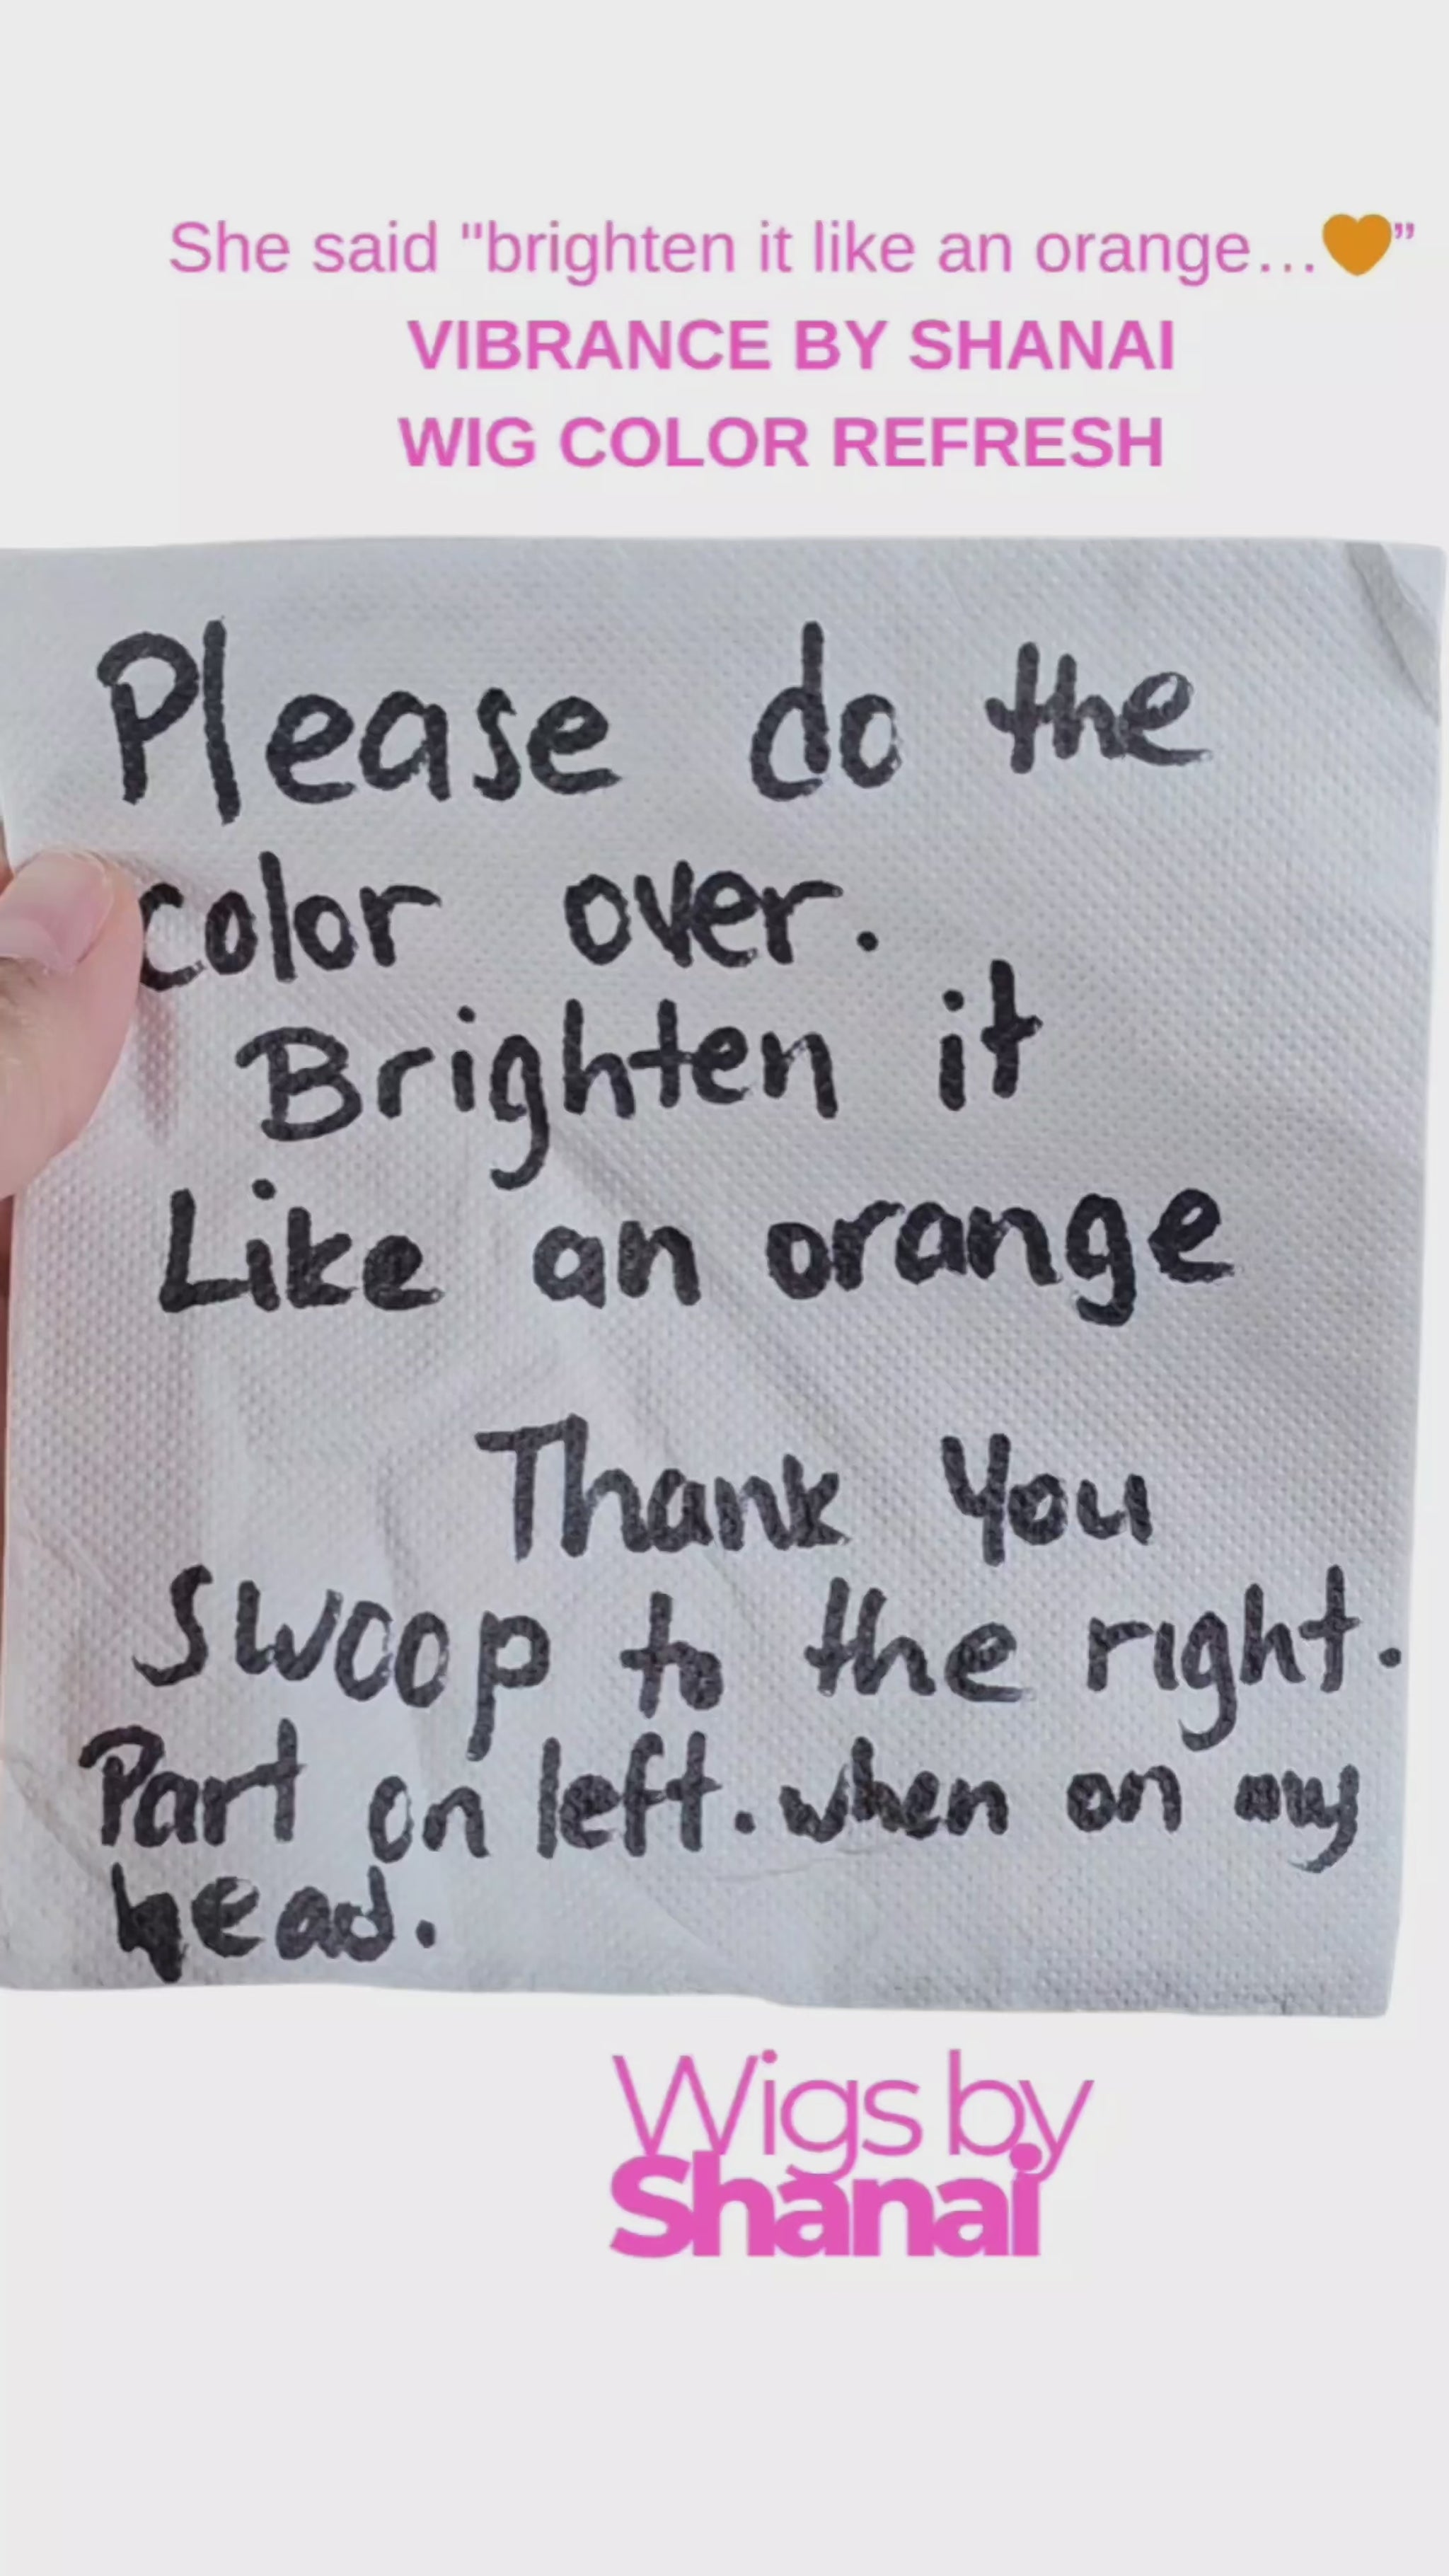 She said "brighten it like an orange...🧡”
VIBRANCE BY SHANAI
WIG COLOR REFRESH
Please do the
color over.
Brighten it
Like an orange
Thank You
Swoop to the right.
Part on left. when on my
head.
Wigs by
Shanai